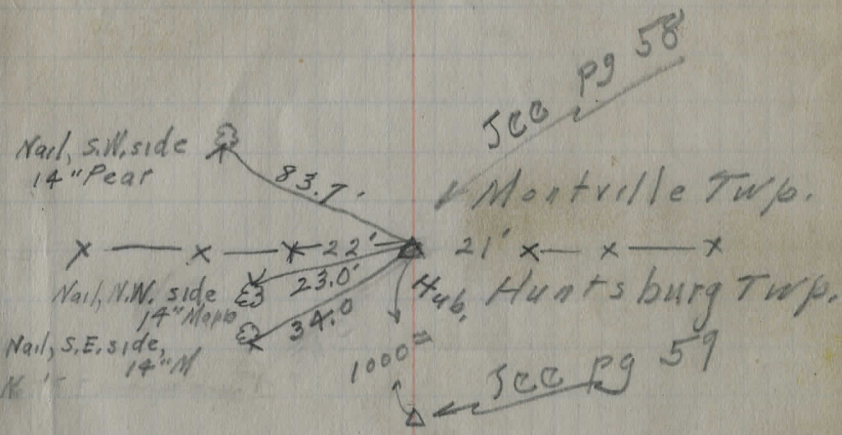 See pg 58
Nail, S.W. side
14" Pear
83.7'
Montville Twp.
22'
21'
Nail, N.W. side
14" Maple
23.0'
Hub,
Huntsburg Twp.
Nail, S.E. side,
14" M
34.0
1000=
See pg 59